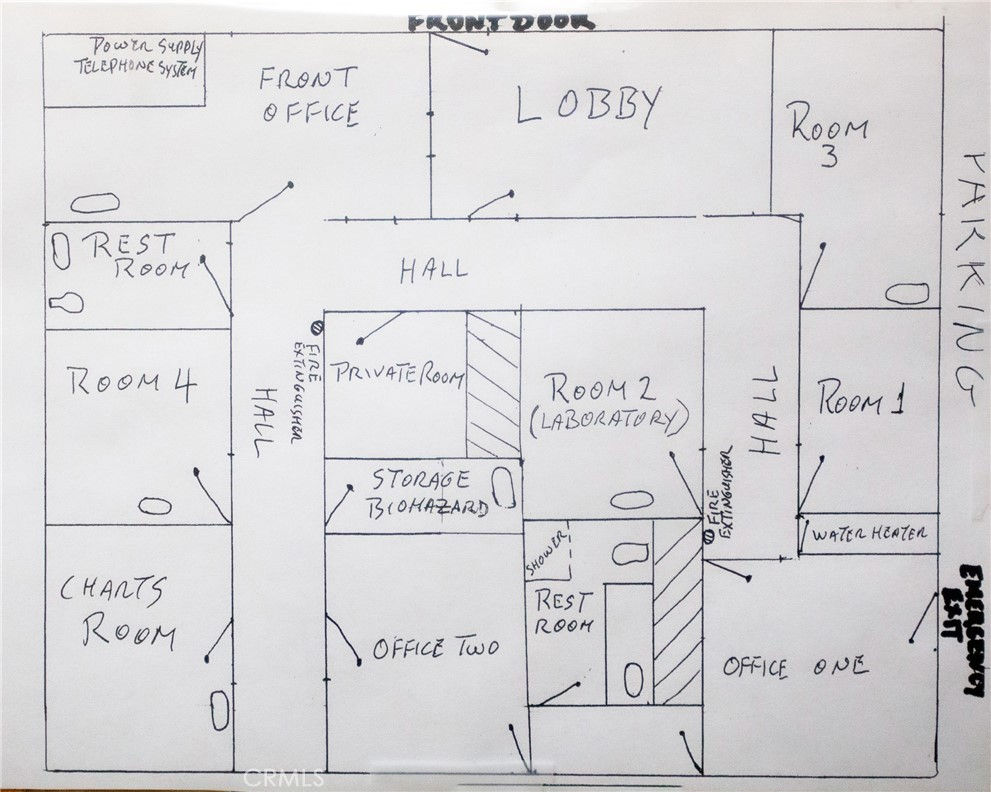 FRONT DOOR
POWER SUPPLY
TELEPHONE SYSTEM
FRONT
OFFICE
LOBBY
ROOM
3
PARKING
REST
ROOM
HALL
ROOM 4
HALL
FIRE
EXTINGUISHER
PRIVATE ROOM
ROOM 2
(LABORATORY)
HALL
ROOM 1
STORAGE
BIOHAZARD
FIRE
EXTINGUISHER
WATER HEATER
SHOWER
CHARTS
ROOM
REST
ROOM
OFFICE TWO
OFFICE ONE
EMERGENCY
EXIT
CRMLS